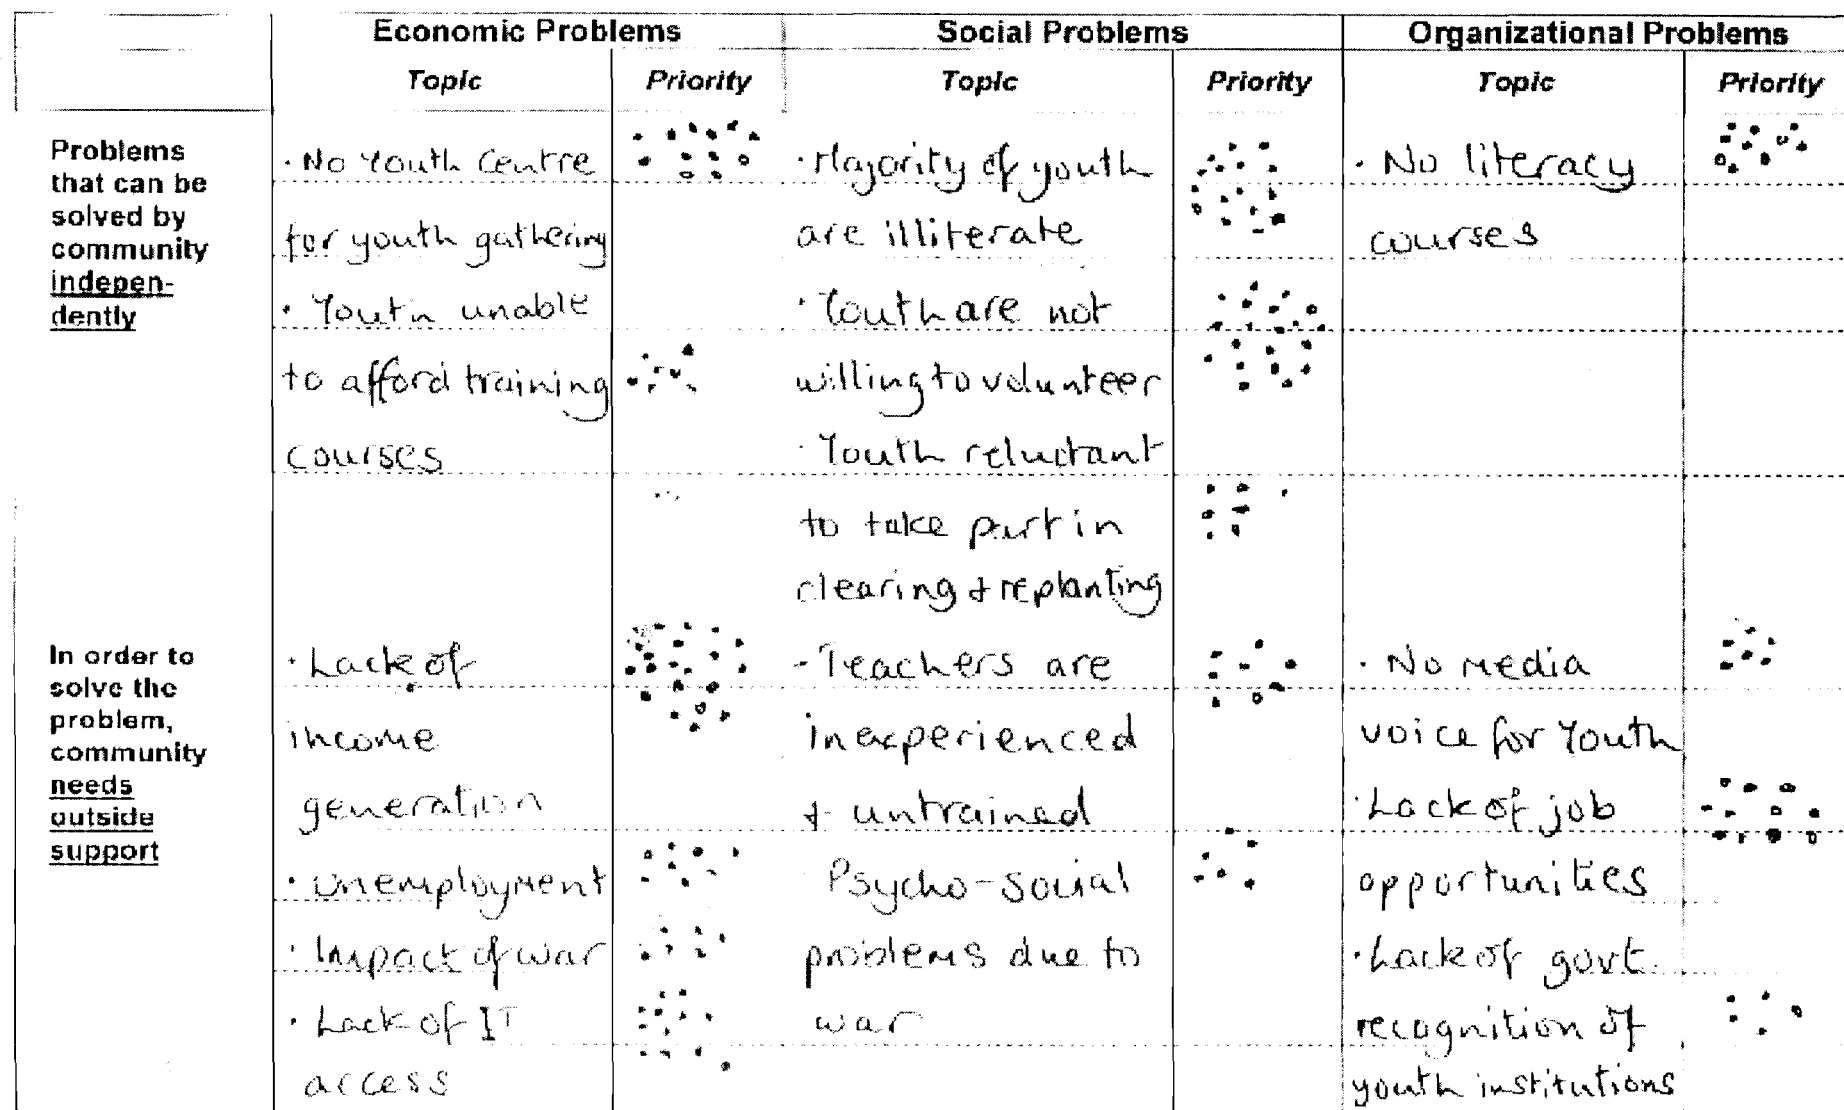 Economic Problems Social Problems Organizational Problems
Topic Priority Topic Priority Topic Priority
Problems
that can be
solved by
community
indepen-
dently
· No Youth Centre
for youth gathering
· Youth unable
to afford training
courses
· Majority of youth
are illiterate
· Youth are not
willing to volunteer
· Youth reluctant
to take part in
clearing + replanting
· No literacy
courses
In order to
solve the
problem,
community
needs
outside
support
· Lack of
income
generation
· Unemployment
· Impact of war
· Lack of IT
access
- Teachers are
inexperienced
+ untrained
Psycho-social
problems due to
war
· No media
voice for Youth
· Lack of job
opportunities
· Lack of govt.
recognition of
youth institutions